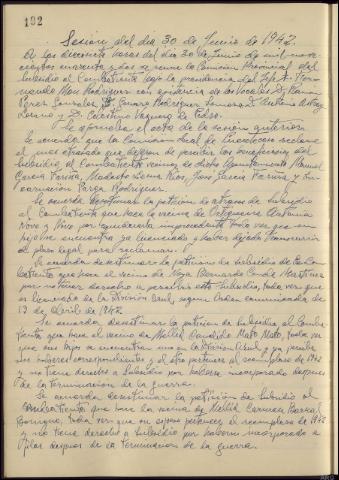 102
Sesión del día 30 de Junio de 1942
A las diecisiete horas del día 30 de Junio de mil nove-
cientos cuarenta y dos se reune la Comisión Provincial del
Subsidio al Combatiente bajo la presidencia del
Rodriguez con asistencia de los Vocales D. Ramón
Perez Gonzalez, D. Rodriguez D. Antonio
y D. Celestino Vazquez de
Se aprueba el acta de la sesión anterior
Se acuerda que la Comisión local de reclame
el mes que dejaron de percibir los beneficiarios del
Subsidio al Combatiente vecinos de dicho Ayuntamiento Manuel
Modesto Rios, Jose Garcia y En-
carnación Rodriguez.
Se acuerda desestimar la petición de atrasos de Subsidio
al Combatiente que hace la vecina de Antonia
Novo y Novo por improcedente toda vez que su
hijo se encuentra ya licenciado y haber dejado transcurrir
el plazo legal para reclamar.
Se acuerda desestimar la petición de Subsidio al Com-
batiente que hace el vecino de Bernardo Conde Martinez
por no tener derecho a percibir este Subsidio, toda vez que
es licenciado de la División Azul, segun Orden comunicada de
13 de Abril de 1942.
Se acuerda desestimar la petición de Subsidio al Comba-
tiente que hace el vecino de Mellid Candido Mato Mato, toda vez
que sus hijos se encuentra uno en la División Azul y ya percibe
sus haberes correspondientes y el otro pertenece al reemplazo de 1942
y no tiene derecho a Subsidio por haberse incorporado despues
de la terminación de la guerra.
Se acuerda desestimar la petición de Subsidio al
Combatiente que hace la vecina de Mellid Carmen
toda vez que su esposo pertenece al reemplazo de 1942
y no tiene derecho a Subsidio por haberse incorporado a
filas despues de la terminación de la guerra.